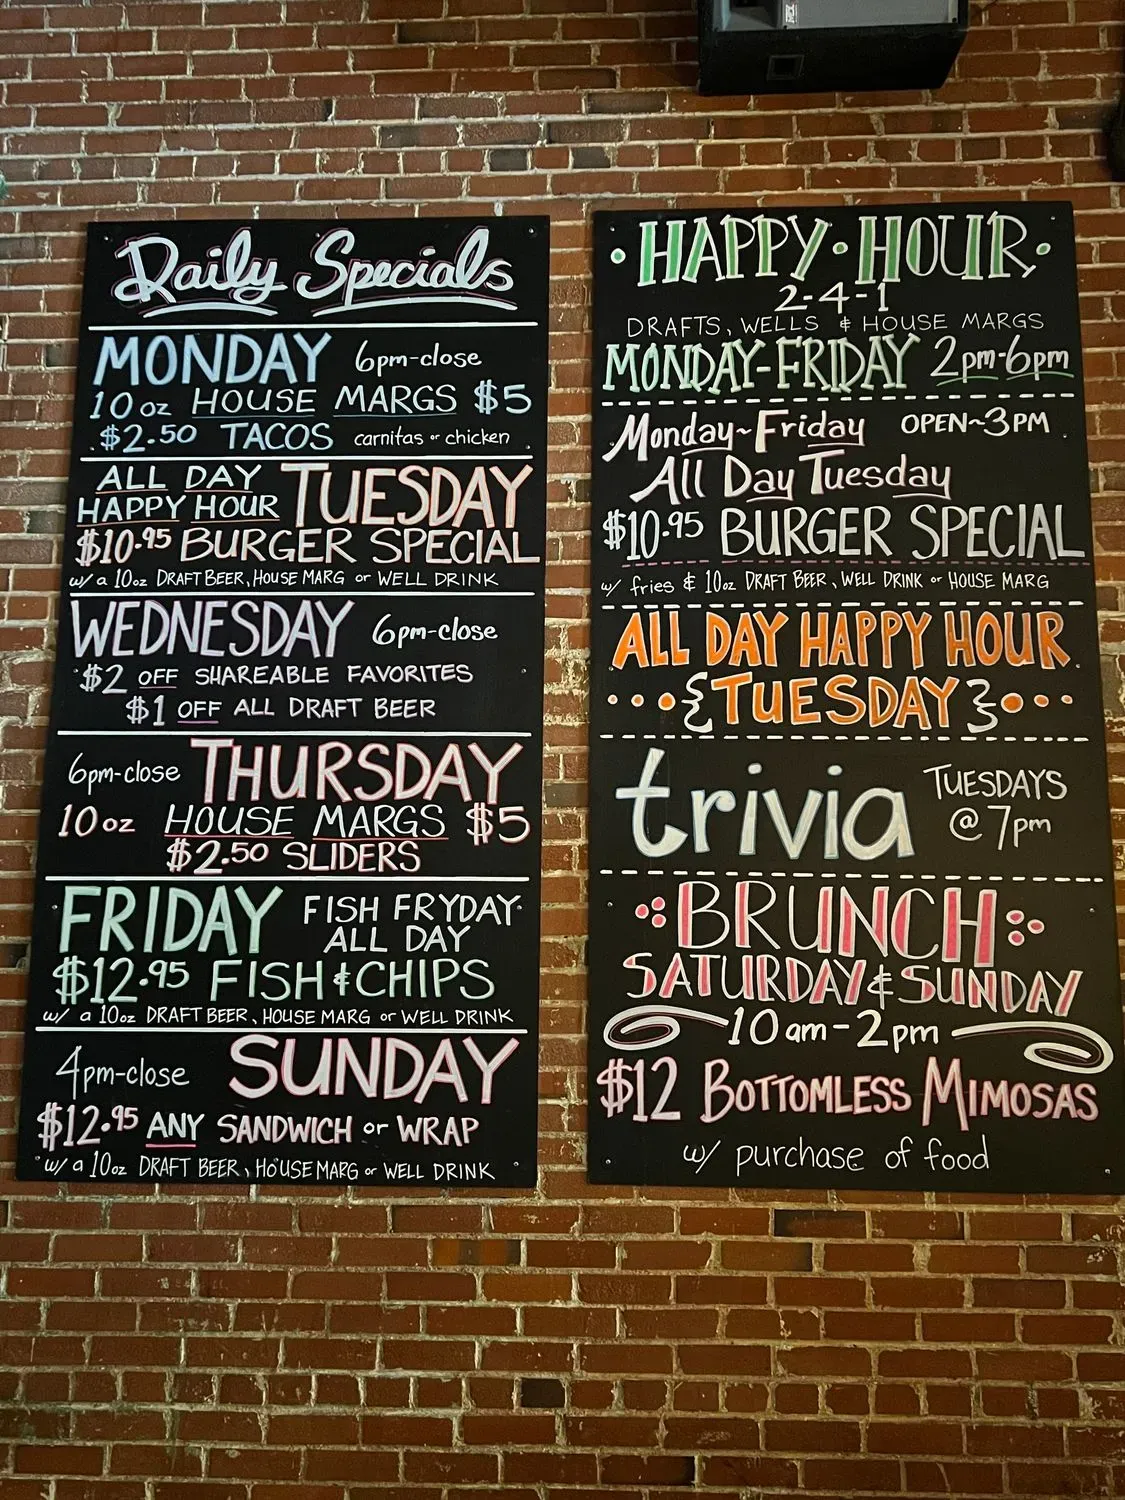 Daily Specials
MONDAY 6pm-close
10 oz HOUSE MARGS $5
$2.50 TACOS carnitas or chicken
ALL DAY
HAPPY HOUR TUESDAY
$10.95 BURGER SPECIAL
w/ a 10oz DRAFT BEER, HOUSE MARG or WELL DRINK
WEDNESDAY 6pm-close
$2 OFF SHAREABLE FAVORITES
$1 OFF ALL DRAFT BEER
6pm-close THURSDAY
10 oz HOUSE MARGS $5
$2.50 SLIDERS
FRIDAY FISH FRYDAY
ALL DAY
$12.95 FISH & CHIPS
w/ a 10oz DRAFT BEER, HOUSE MARG or WELL DRINK
4pm-close SUNDAY
$12.95 ANY SANDWICH or WRAP
w/ a 10oz DRAFT BEER, HOUSE MARG or WELL DRINK
HAPPY HOUR
2-4-1
DRAFTS, WELLS & HOUSE MARGS
MONDAY-FRIDAY 2pm-6pm
Monday~Friday OPEN~3PM
All Day Tuesday
$10.95 BURGER SPECIAL
w/ fries & 10oz DRAFT BEER, WELL DRINK or HOUSE MARG
ALL DAY HAPPY HOUR
{TUESDAY}
trivia TUESDAYS
@ 7pm
BRUNCH
SATURDAY & SUNDAY
10 am - 2pm
$12 BOTTOMLESS MIMOSAS
w/ purchase of food